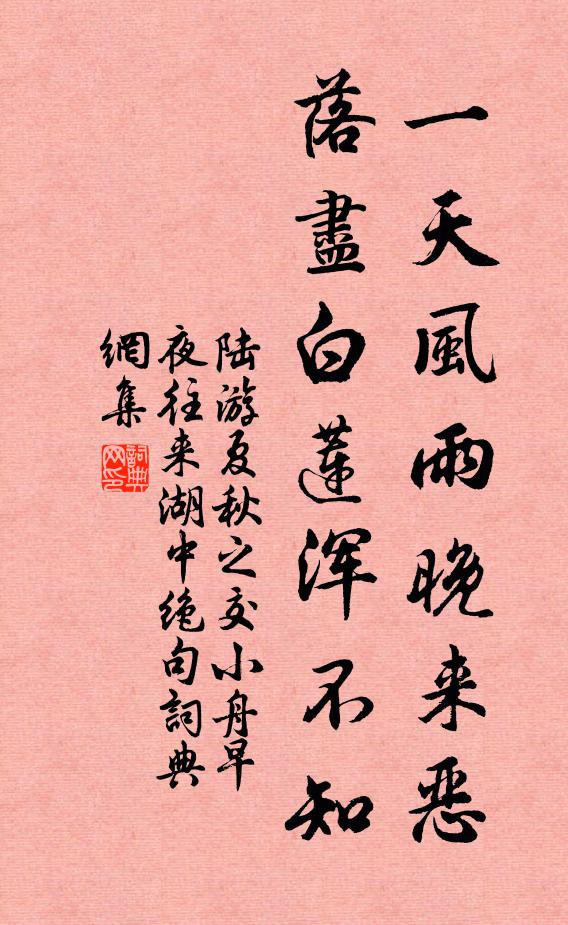 一天風雨晚来恶
落盡白蓮浑不知
陆游夏秋之交小舟早
夜往来湖中绝句詞典
網集
詞典
网印